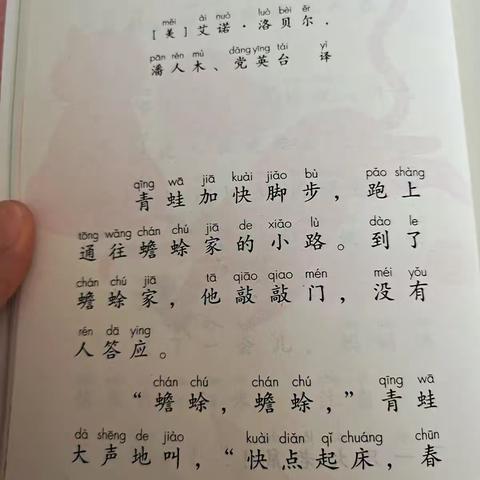 měi ài nuò luò bèi ěr
[美]艾诺·洛贝尔.
pān rén mù dǎng yīng tái yì
潘人木、党英台 译
qīng wā jiā kuài jiǎo bù pǎo shàng
青蛙加快脚步，跑上
tōng wǎng chán chú jiā de xiǎo lù dào le
通往蟾蜍家的小路。到了
chán chú jiā tā qiāo qiao mén méi yǒu
蟾蜍家，他敲敲门，没有
rén dā ying
人答应。
chán chú chán chú qīng wā
“蟾蜍，蟾蜍，”青蛙
dà shēng de jiào kuài diǎn qǐ chuáng chūn
大声地叫，“快点起床，春